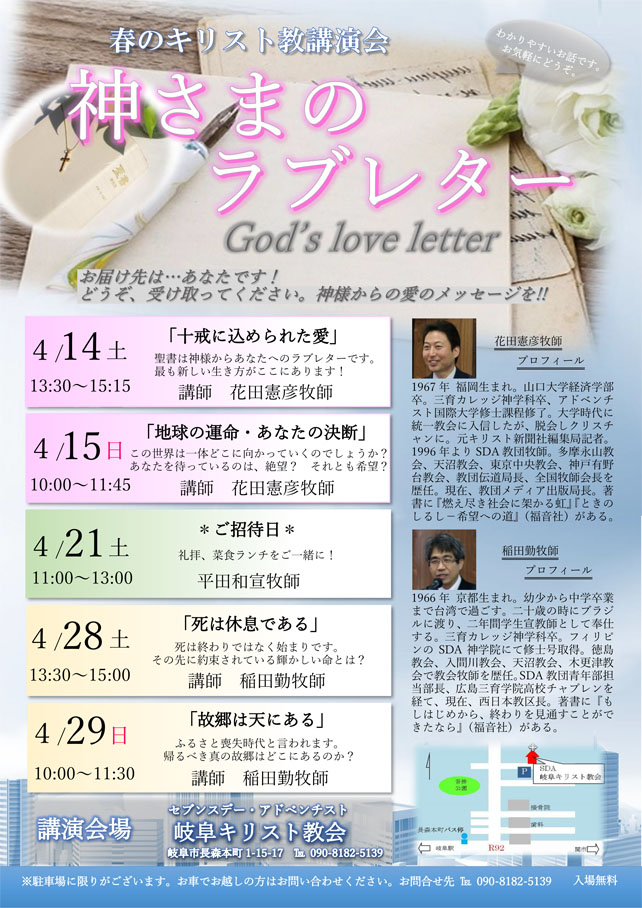 春のキリスト教講演会
わかりやすいお話です。
お気軽にどうぞ。
神さまの
ラブレター
God's love letter
お届け先は…あなたです！
どうぞ、受け取ってください。神様からの愛のメッセージを!!
4/14土
13:30～15:15
「十戒に込められた愛」
聖書は神様からあなたへのラブレターです。
最も新しい生き方がここにあります！
講師　花田憲彦牧師
4/15日
10:00～11:45
「地球の運命・あなたの決断」
この世界は一体どこに向かっていくのでしょうか？
あなたを待っているのは、絶望？　それとも希望？
講師　花田憲彦牧師
4/21土
11:00～13:00
＊ご招待日＊
礼拝、菜食ランチをご一緒に！
平田和宣牧師
4/28土
13:30～15:00
「死は休息である」
死は終わりではなく始まりです。
その先に約束されている輝かしい命とは？
講師　稲田勤牧師
4/29日
10:00～11:30
「故郷は天にある」
ふるさと喪失時代と言われます。
帰るべき真の故郷はどこにあるのか？
講師　稲田勤牧師
花田憲彦牧師
プロフィール
1967年 福岡生まれ。山口大学経済学部
卒。三育カレッジ神学科卒、アドベンチ
スト国際大学修士課程修了。大学時代に
統一教会に入信したが、脱会しクリスチ
ャンに。元キリスト新聞社編集局記者。
1996年よりSDA教団牧師。多摩永山教
会、天沼教会、東京中央教会、神戸有野
台教会、教団伝道局長、全国牧師会長を
歴任。現在、教団メディア出版局長。著
書に『燃え尽き社会に架かる虹』『ときの
しるし－希望への道』（福音社）がある。
稲田勤牧師
プロフィール
1966年 京都生まれ。幼少から中学卒業
まで台湾で過ごす。二十歳の時にブラジ
ルに渡り、二年間学生宣教師として奉仕
する。三育カレッジ神学科卒。フィリピ
ンのSDA神学院にて修士号取得。徳島
教会、入間川教会、天沼教会、木更津教
会で教会牧師を歴任。SDA教団青年部担
当部長、広島三育学院高校チャプレンを
経て、現在、西日本教区長。著書に『も
しはじめから、終わりを見通すことがで
きたなら』（福音社）がある。
P
SDA
岐阜キリスト教会
公園
接骨院
歯科
長森本町バス停
岐阜駅
R92
関市
講演会場
セブンスデー・アドベンチスト
岐阜キリスト教会
岐阜市長森本町1-15-17　℡ 090-8182-5139
※駐車場に限りがございます。お車でお越しの方はお問い合わせください。お問合せ先 ℡ 090-8182-5139　入場無料